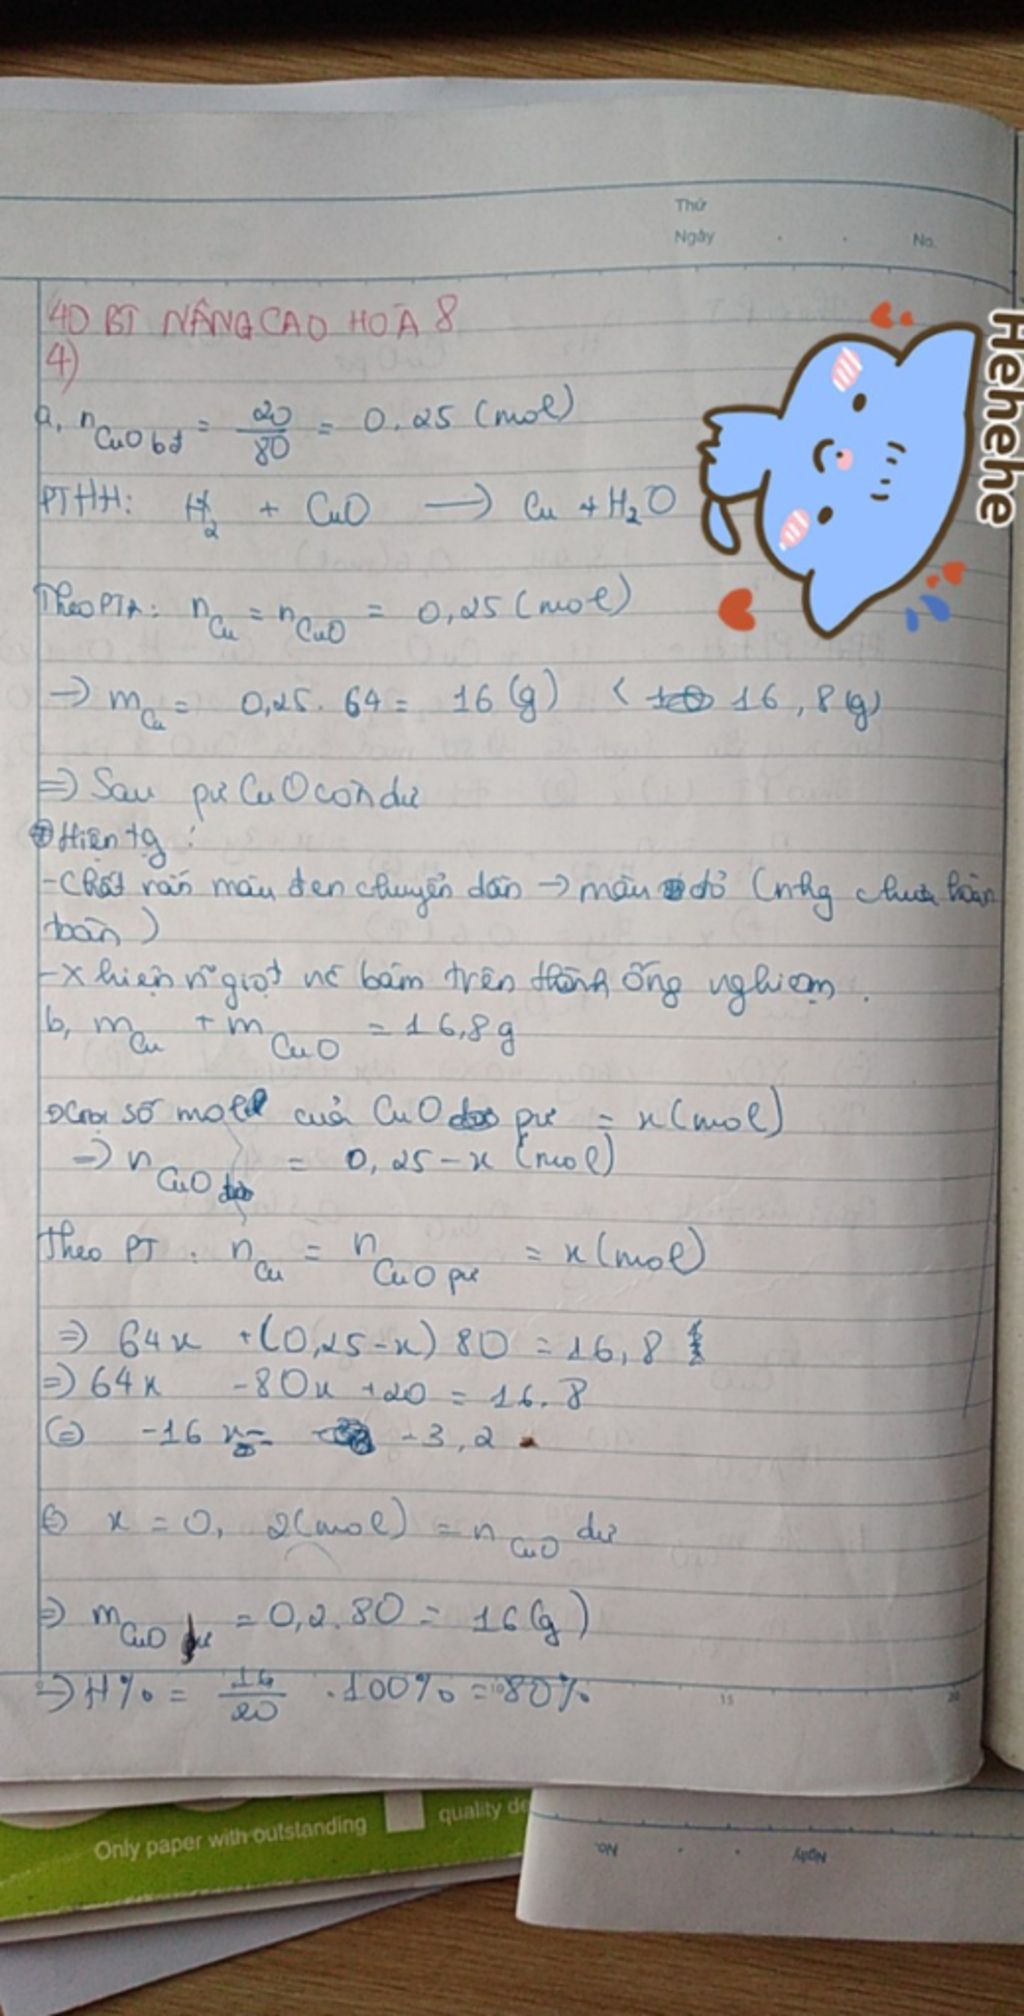 Thứ
Ngày . . No.
40 BT NÂNG CAO HOÁ 8
4)
a, n CuO bđ = 20/80 = 0.25 (mol)
PTHH: H2 + CuO → Cu + H2O
Theo PTPƯ: nCu = nCuO = 0,25 (mol)
→ mCu = 0,25. 64 = 16 (g) < 16,8 (g)
⇒ Sau pư CuO còn dư
Hiện tg :
- Chất rắn màu đen chuyển dần → màu đỏ (nhg chưa hoàn
toàn)
- X hiện n~ giọt nc bám trên thành ống nghiệm.
b, mCu + mCuO = 16,8g
Gọi số mol của CuO pư = x (mol)
→ nCuO dư = 0,25 - x (mol)
Theo PT : nCu = nCuO pư = x (mol)
⇒ 64x + (0,25 - x) 80 = 16,8
⇒ 64x - 80x + 20 = 16.8
⇔ -16x = -3,2
⇔ x = 0,2 (mol) = nCuO dư
⇒ mCuO = 0,2.80 = 16 (g)
⇒ H% = 16/20 .100% = 80%
10 15 20
Hehehe
Only paper with outstanding quality
Ngày . . No.